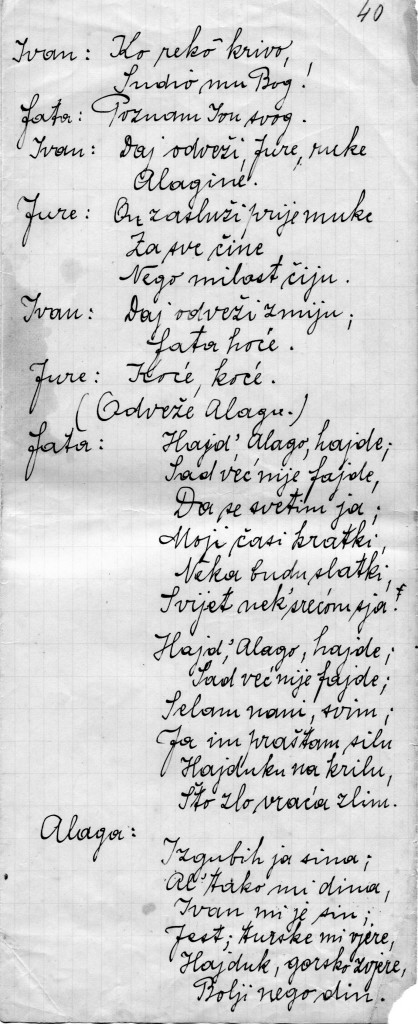 40
Ivan: Ko rekô krivo,
Sudio mu Bog!
Fata: Poznam Ivu svog.
Ivan: Daj odveži, Jure, ruke
Alagine.
Jure: On zasluži prije muke
Za sve čine
Nego milost čiju.
Ivan: Daj odveži zmiju;
Fata hoće.
Jure: Hoće, hoće.
(Odveže Alagu.)
Fata: Hajd', Alago, hajde;
Sad već nije fajde,
Da se svetim ja;
Moji časi kratki,
Neka budu slatki,
Svijet nek' srećom sja!
Hajd', Alago, hajde;
Sad već nije fajde;
Selam nami, svim;
Ja im praštam silu
Hajduku na krilu,
Što zlo vraća zlim.
Alaga:
Izgubih ja sina;
Al' tako mi dina,
Ivan mi je sin;
Jest, turske mi vjere,
Hajduk, gorsko zvjere,
Bolji nego din.